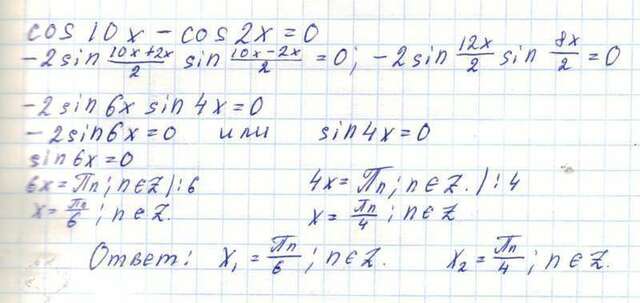 cos 10x - cos 2x = 0
-2 sin (10x+2x)/2 sin (10x-2x)/2 = 0; -2 sin 12x/2 sin 8x/2 = 0
-2 sin 6x sin 4x = 0
-2 sin 6x = 0 или sin 4x = 0
sin 6x = 0
6x = Пn; n∈Z /:6 4x = Пn; n∈Z. /:4
x = Пn/6; n∈Z. x = Пn/4; n∈Z
Ответ: x₁ = Пn/6; n∈Z. x₂ = Пn/4; n∈Z.